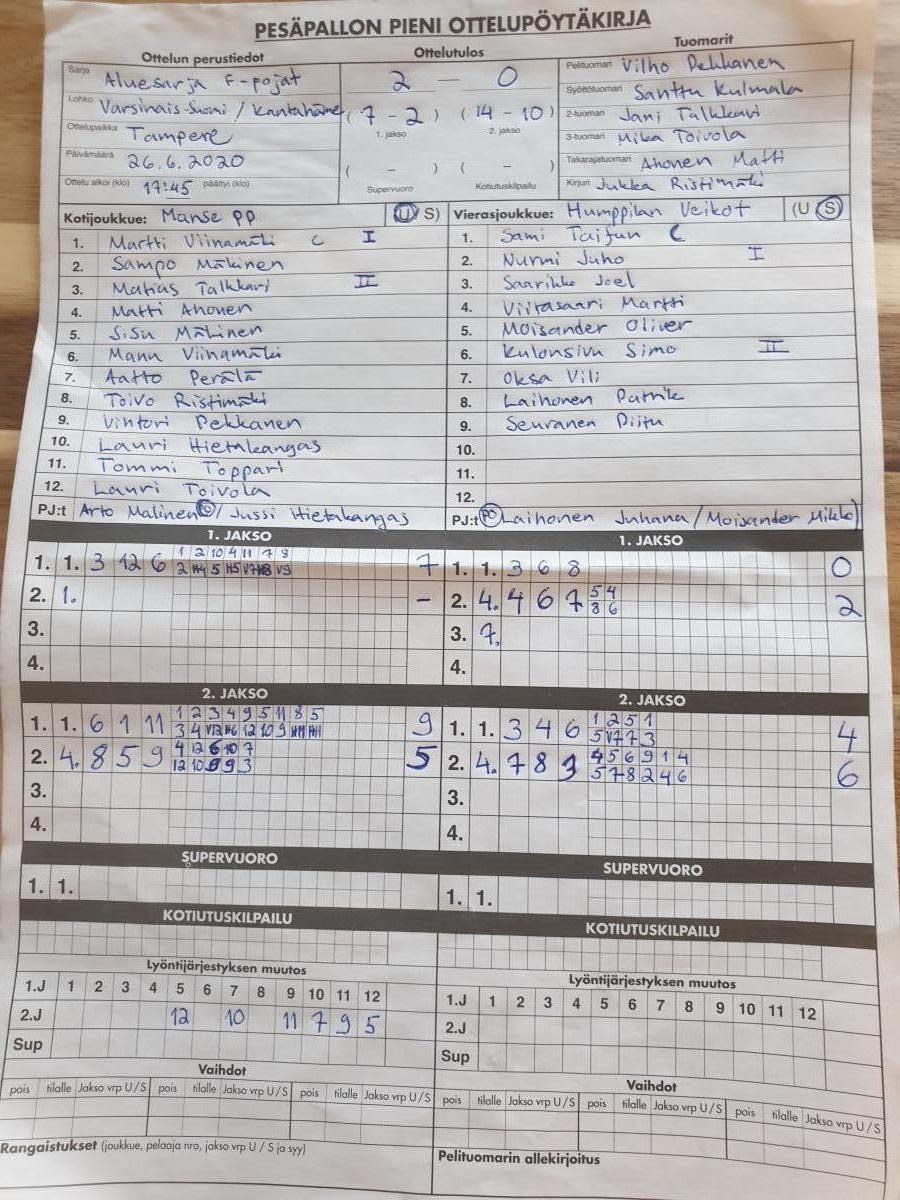 PESÄPALLON PIENI OTTELUPÖYTÄKIRJA
Ottelun perustiedot
Sarja Aluesarja F-pojat
Lohko Varsinais-Suomi / Kantahäme
Ottelupaikka Tampere
Päivämäärä 26.6.2020
Ottelu alkoi (klo) 17:45 päättyi (klo)
Ottelutulos
2 — 0
(7 - 2) (14 - 10)
1. jakso 2. jakso
( - ) ( - )
Supervuoro Kotiutuskilpailu
Tuomarit
Pelituomari Vilho Pekkanen
Syöttötuomari Santtu Kulmala
2-tuomari Jani Talkkari
3-tuomari Mika Toivola
Takarajatuomari Ahonen Matti
Kirjuri Jukka Ristimäki
Kotijoukkue: Manse PP (U S)
1. Martti Viinamäki C I
2. Sampo Mäkinen
3. Matias Talkkari II
4. Matti Ahonen
5. Sisu Mäkinen
6. Manu Viinamäki
7. Aatto Perälä
8. Toivo Ristimäki
9. Vihtori Pekkanen
10. Lauri Hietakangas
11. Tommi Toppari
12. Lauri Toivola
PJ:t Arto Malinen / Jussi Hietakangas
Vierasjoukkue: Humppilan Veikot (U S)
1. Sami Taifun C
2. Nurmi Juho I
3. Saarikko Joel
4. Viitasaari Martti
5. Moisander Oliver
6. Kulonsivu Simo II
7. Oksa Vili
8. Laihonen Patrik
9. Seuranen Piitu
10.
11.
12.
PJ:t PC Laihonen Juhana / Moisander Mikko
1. JAKSO
1. 1. 3 12 6 1 2 10 4 11 7 8 7
2 5
2. 1. -
3.
4.
1. JAKSO
1. 1. 3 6 8 0
2. 4. 4 6 7 5 4 2
8 6
3. 7.
4.
2. JAKSO
1. 1. 6 1 11 1 2 3 4 9 5 11 8 5 9
3 4 V12 12 10 9
2. 4. 8 5 9 4 12 6 10 7 5
12 10 9 3
3.
4.
2. JAKSO
1. 1. 3 4 6 1 2 5 1 4
5 V7 7 3
2. 4. 7 8 9 4 5 6 9 1 4 6
5 7 8 2 4 6
3.
4.
SUPERVUORO
1. 1.
SUPERVUORO
1. 1.
KOTIUTUSKILPAILU
KOTIUTUSKILPAILU
Lyöntijärjestyksen muutos
1.J 1 2 3 4 5 6 7 8 9 10 11 12
2.J 12 10 11 7 9 5
Sup
Lyöntijärjestyksen muutos
1.J 1 2 3 4 5 6 7 8 9 10 11 12
2.J
Sup
Vaihdot
pois tilalle Jakso vrp U/S pois tilalle Jakso vrp U/S pois tilalle Jakso vrp U/S
Vaihdot
pois tilalle Jakso vrp U/S pois tilalle Jakso vrp U/S pois tilalle Jakso vrp U/S
Rangaistukset (joukkue, pelaaja nro, jakso vrp U / S ja syy)
Pelituomarin allekirjoitus